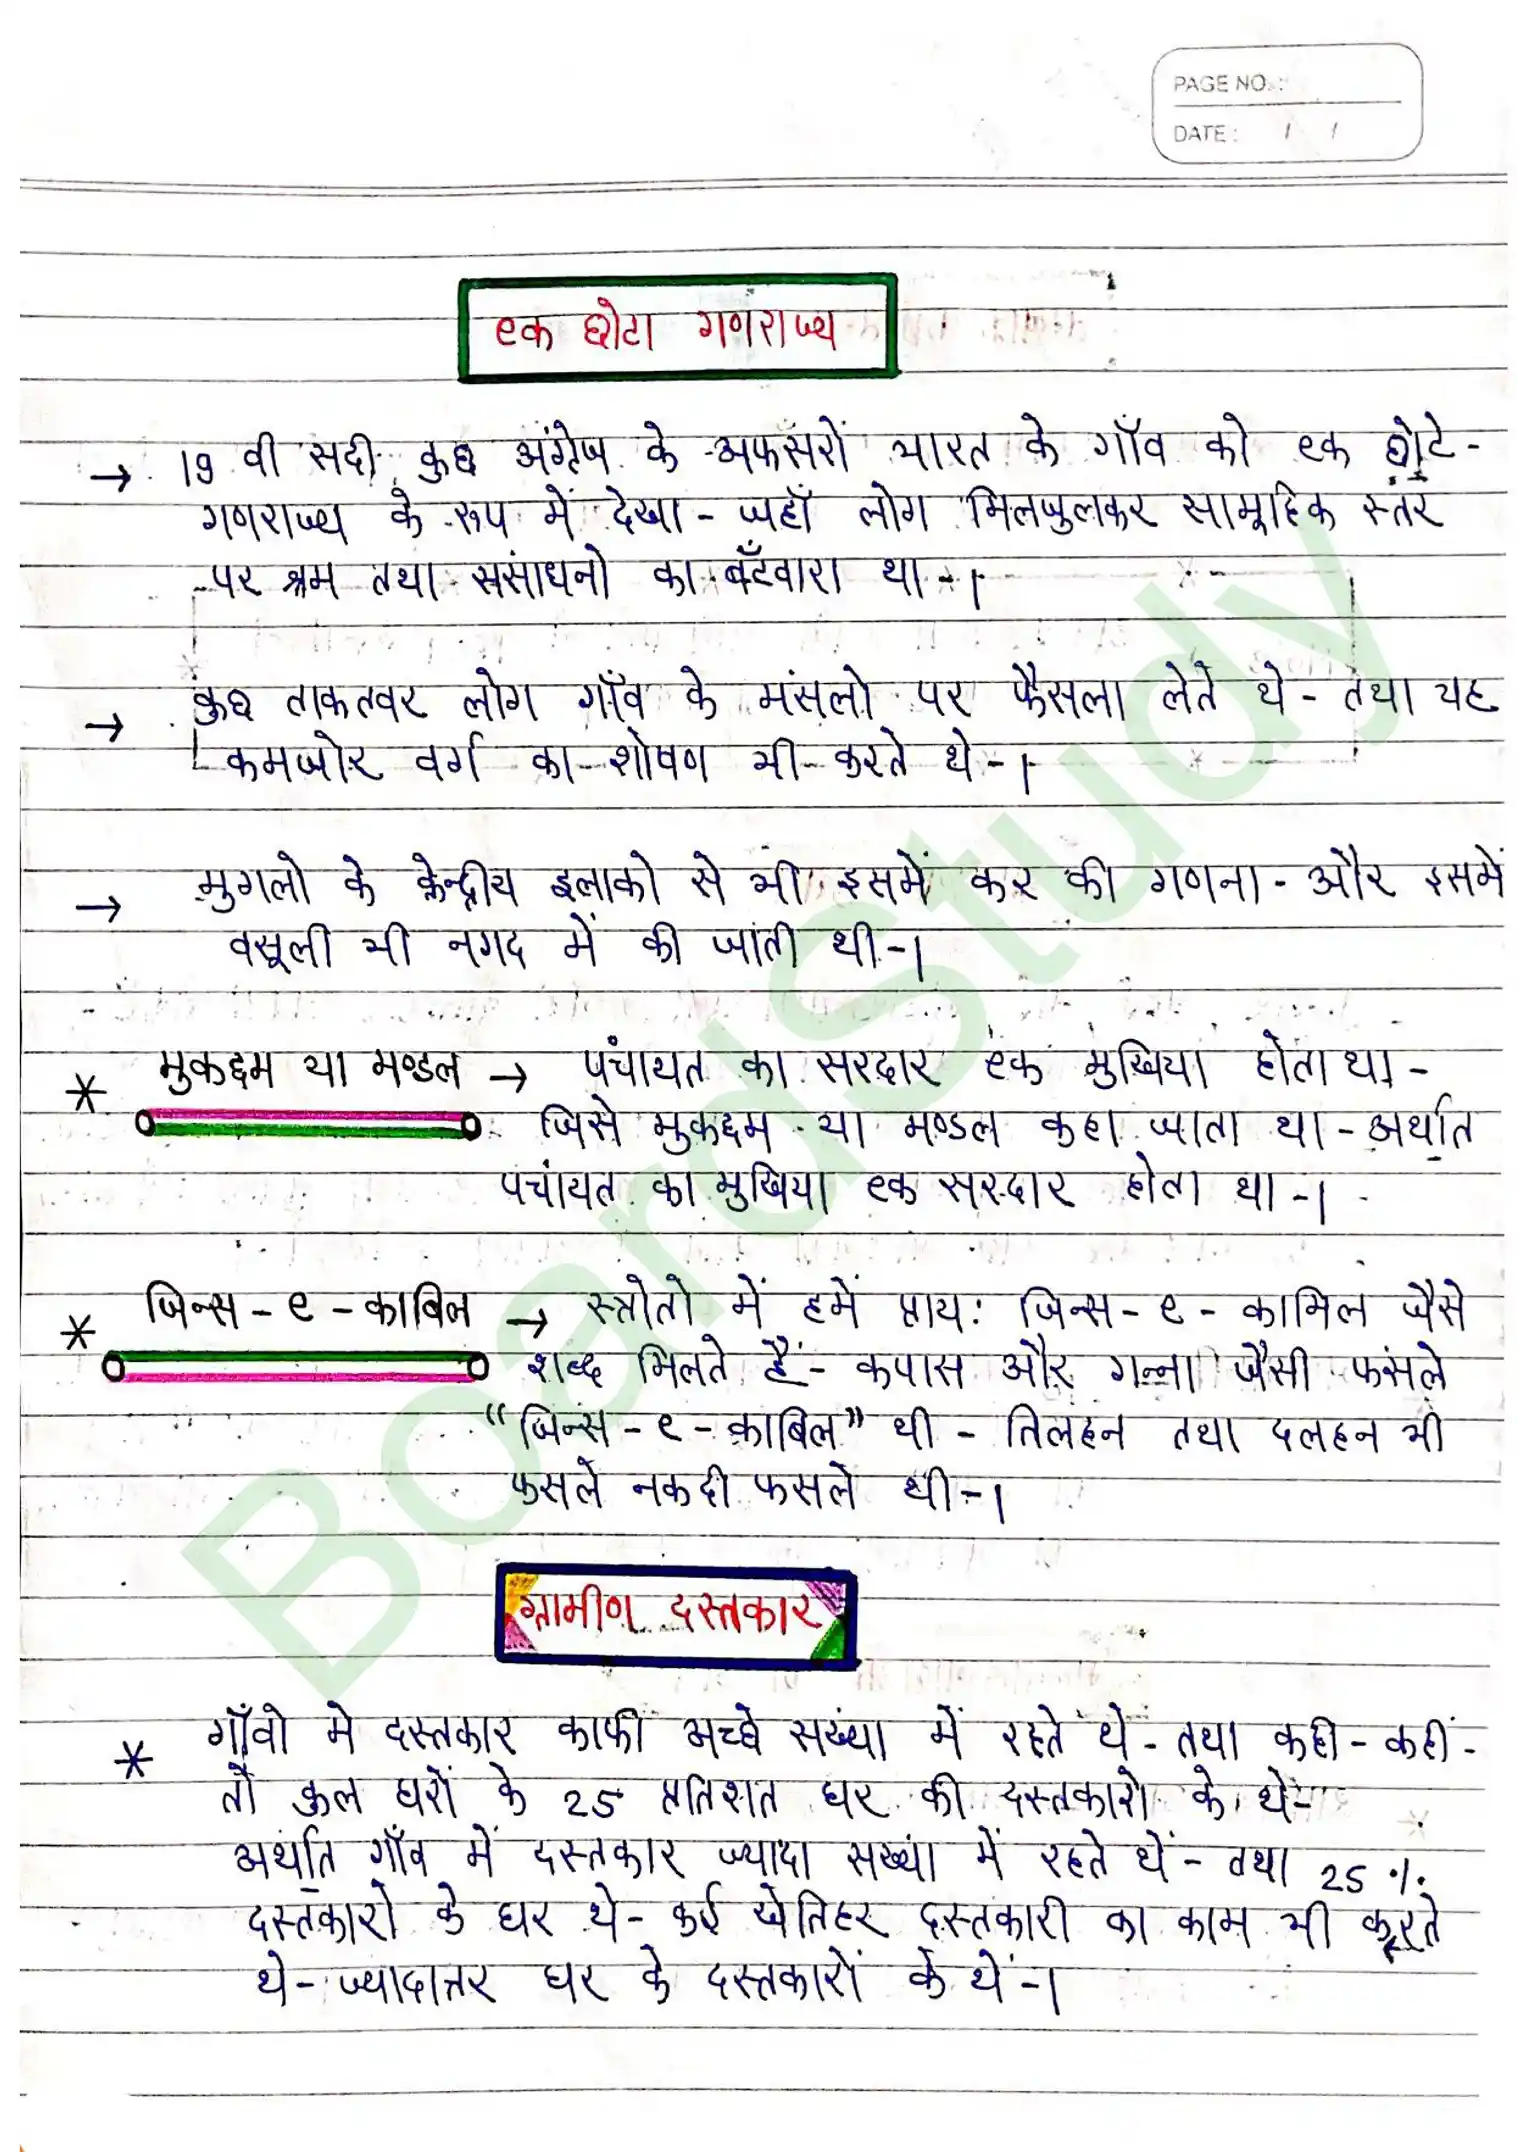 PAGE NO. :
DATE : / /
एक छोटा गणराज्य
→ 19 वी सदी कुछ अंग्रेज के अफसरों भारत के गाँव को एक छोटे -
गणराज्य के रूप में देखा - जहाँ लोग मिलजुलकर सामूहिक स्तर
पर श्रम तथा संसाधनो का बँटवारा था - ।
→ कुछ ताकतवर लोग गाँव के मसलो पर फैसला लेते थे - तथा यह
कमजोर वर्ग का शोषण भी करते थे - ।
→ मुगलो के केन्द्रीय इलाको से भी इसमें कर की गणना - और इसमें
वसूली भी नगद में की जाती थी - ।
* मुकद्दम या मण्डल → पंचायत का सरदार एक मुखिया होता था -
जिसे मुकद्दम या मण्डल कहा जाता था - अर्थात
पंचायत का मुखिया एक सरदार होता था - ।
* जिन्स - ए - काबिल → स्त्रोतो में हमें प्राय: जिन्स - ए - कामिल जैसे
शब्द मिलते हैं - कपास और गन्ना जैसी फसले
“जिन्स - ए - काबिल” थी - तिलहन तथा दलहन भी
फसले नकदी फसले थी - ।
ग्रामीण दस्तकार
* गाँवो मे दस्तकार काफी अच्छे सख्या में रहते थे - तथा कही - कहीं -
तो कुल घरों के 25 प्रतिशत घर की दस्तकारो के थे -
अर्थात गाँव में दस्तकार ज्यादा सख्या में रहते थें - तथा 25 %
दस्तकारो के घर थे - कई खेतिहर दस्तकारी का काम भी करते
थे - ज्यादातर घर के दस्तकारों के थें - ।
BoardStudy